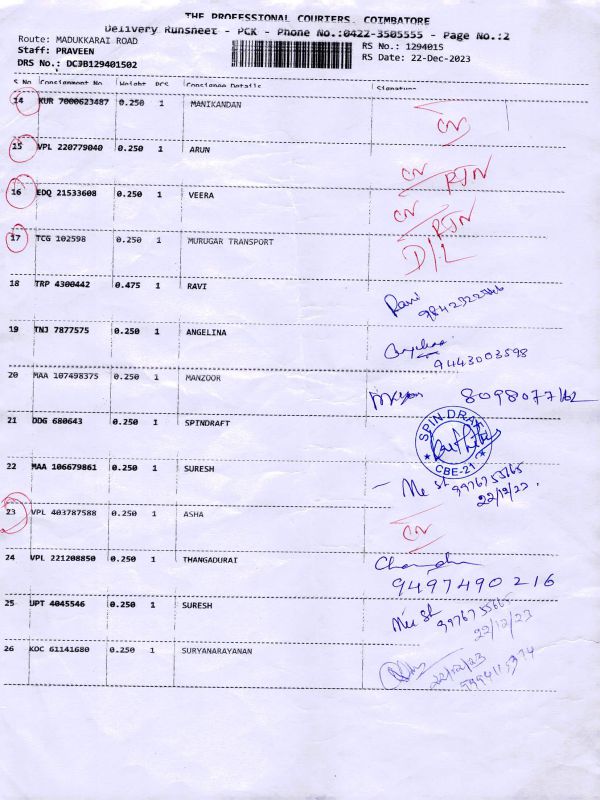 THE PROFESSIONAL COURIERS. COIMBATORE
Delivery Runsheet - PCK - Phone No.:0422-3505555 - Page No.:2
Route: MADUKKARAI ROAD
RS No.: 1294015
Staff: PRAVEEN
RS Date: 22-Dec-2023
DRS No.: DCJB129401502
S No Consignment No Weight PCS Consignee Details Signature
14 KUR 7000623487 0.250 1 MANIKANDAN CN
15 VPL 220779040 0.250 1 ARUN CN RTN
16 EDQ 21533608 0.250 1 VEERA CN RTN
17 TCG 102598 0.250 1 MURUGAR TRANSPORT D/L
18 TRP 4300442 0.475 1 RAVI Ravi
19 TNJ 7877575 0.250 1 ANGELINA 9443003598
20 MAA 107498375 0.250 1 MANZOOR 8098077162
21 DDG 680643 0.250 1 SPINDRAFT SPIN DRAFT CBE-21
22 MAA 106679861 0.250 1 SURESH 9976755765
22/12/23.
23 VPL 403787588 0.250 1 ASHA CN
24 VPL 221208850 0.250 1 THANGADURAI 9497490216
25 UPT 4045546 0.250 1 SURESH
22/12/23
26 KOC 61141680 0.250 1 SURYANARAYANAN 22/12/23